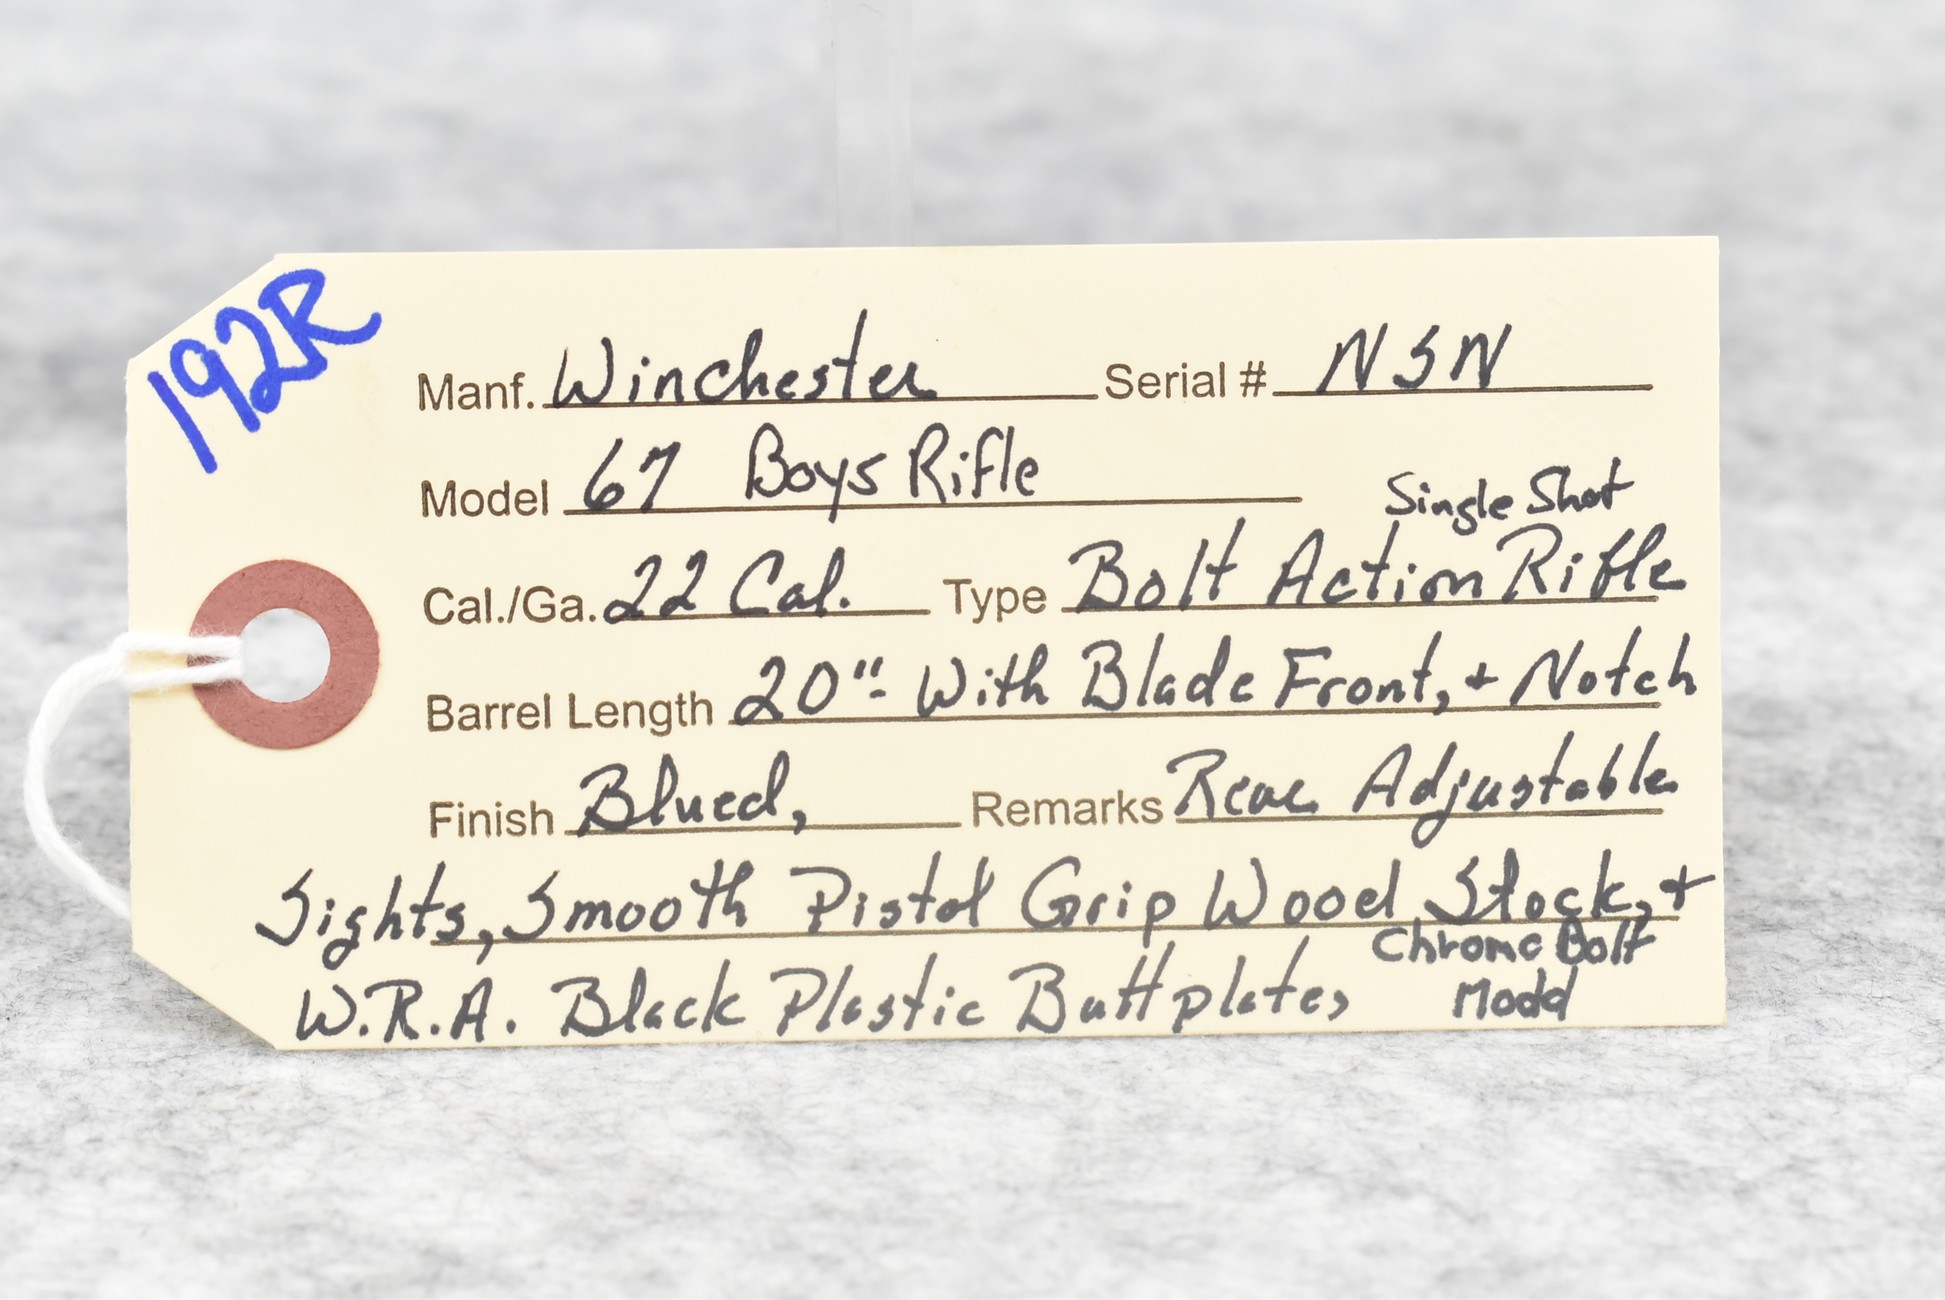 192R
Manf. Winchester Serial # NSN
Model 67 Boys Rifle
Single Shot
Cal./Ga. 22 Cal. Type Bolt Action Rifle
Barrel Length 20" With Blade Front, + Notch
Finish Blued, Remarks Rear Adjustable
Sights, Smooth Pistol Grip Wood Stock, +
W.R.A. Black Plastic Buttplate,
Chrome Bolt
Model